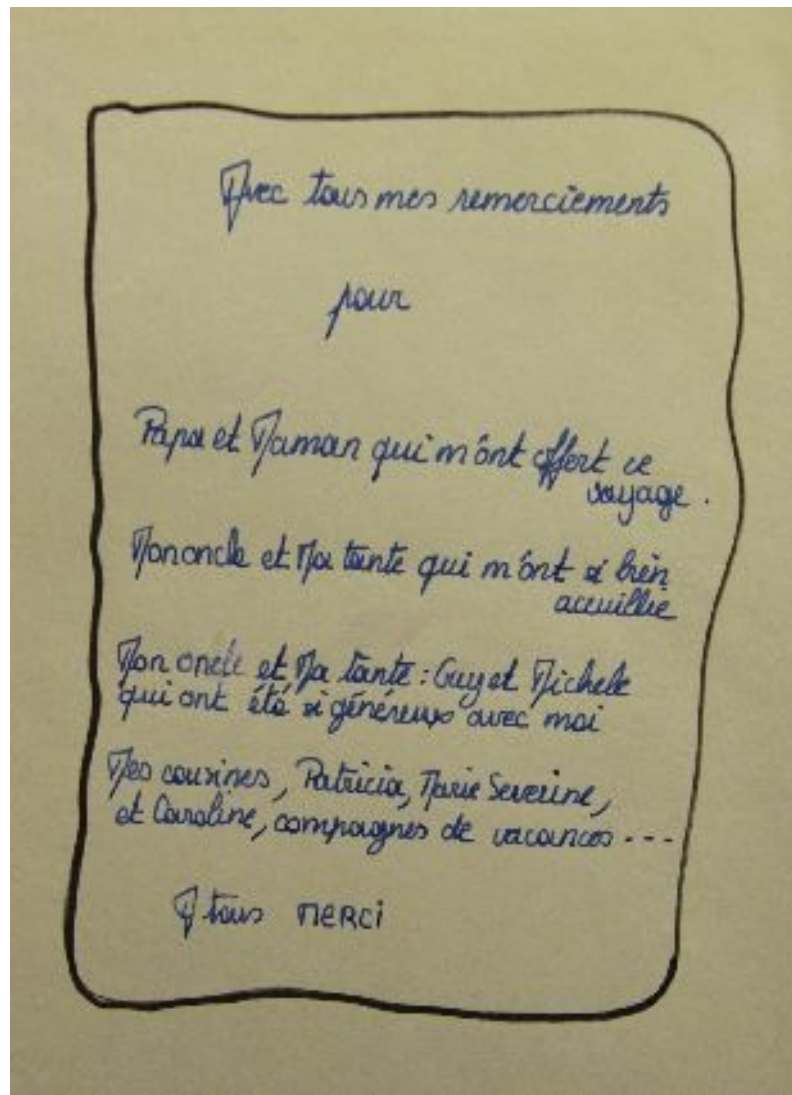 Avec tous mes remerciements
pour
Papa et Maman qui m'ont offert ce
voyage.
Mon oncle et Ma tante qui m'ont si bien
acueillie
Mon oncle et Ma tante : Guy et Michele
qui ont été si généreux avec moi
Mes cousines, Patricia, Marie Severine,
et Caroline, compagnes de vacances ---
A tous MERCI